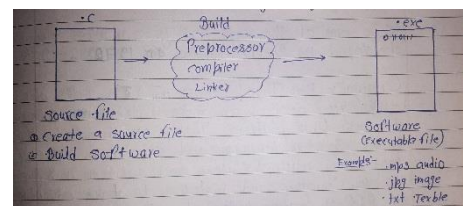 .C
Build
.exe
Preprocessor
compiler
Linker
Source file
① Create a source file
② Build Software
Software
(executable file)
Example:-
.mp3 audio
.jpg image
.txt